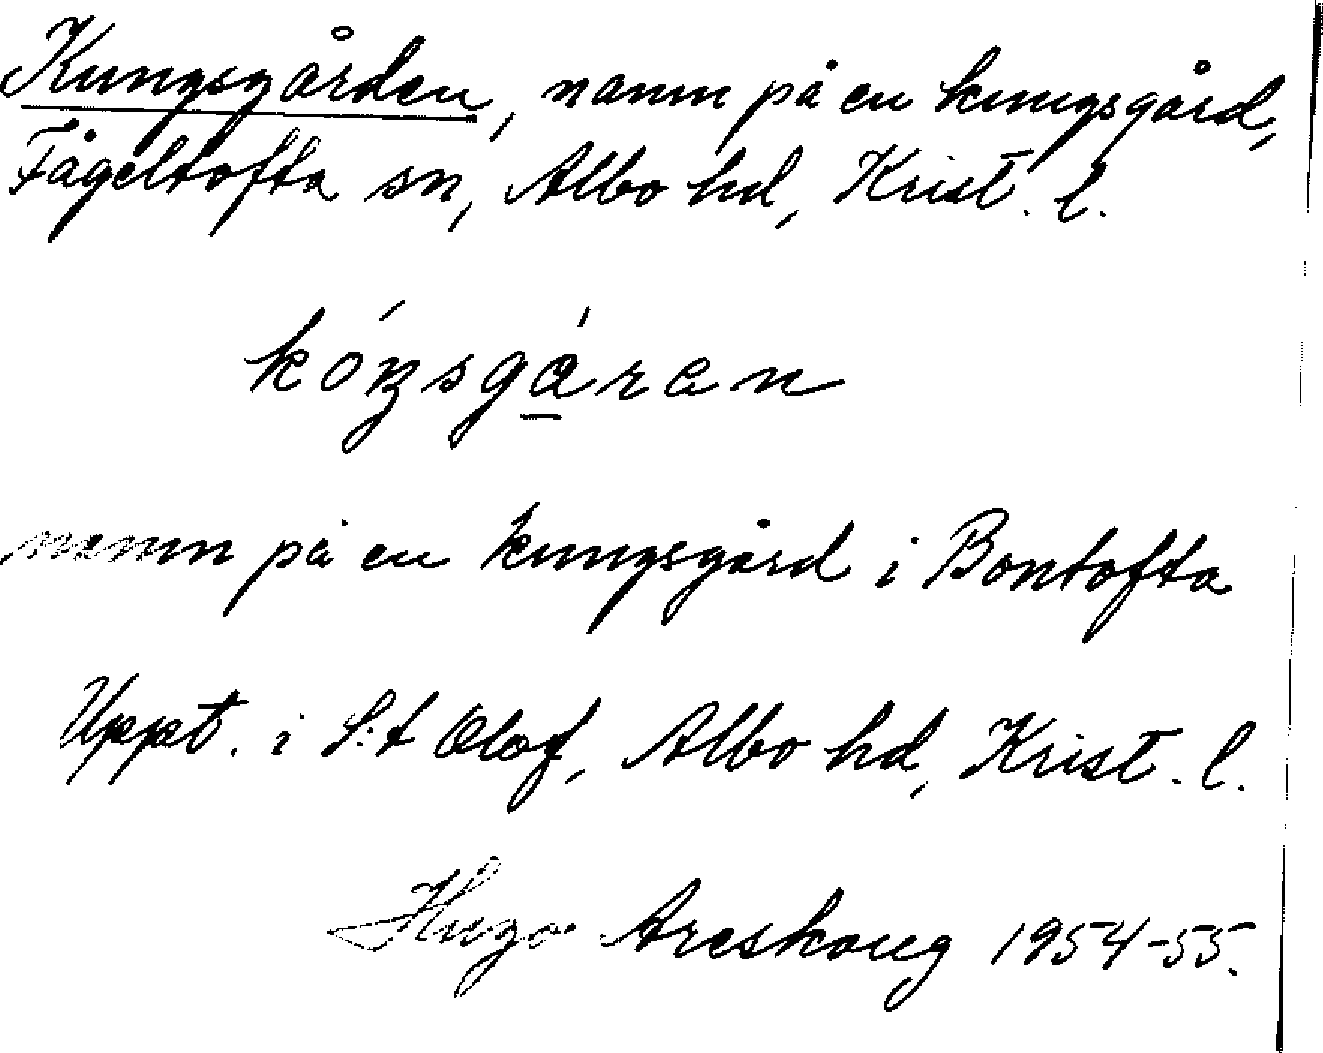 Kungsgården, namn på en kungsgård,
Fågeltofta sn, Albo hd, Krist. l.
kóŋsgá̱ran
namn på en kungsgård i Bontofta
Uppt. i S:t Olof, Albo hd, Krist. l.
Hugo Areskoug 1954-55.